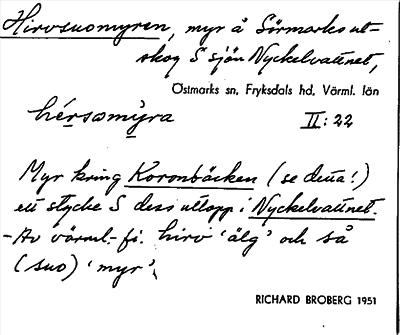 Hirvsuomyren, myr å Sörmarks ut-
skog S sjön Nyckelvattnet,
Östmarks sn, Fryksdals hd, Värml. län
hérsomỳra II:22
Myr kring Koronbäcken (se detta!)
ett stycke S dess utlopp i Nyckelvattnet.
- Av värml.-fi. hirv 'älg' och så
(suo) 'myr'.
RICHARD BROBERG 1951